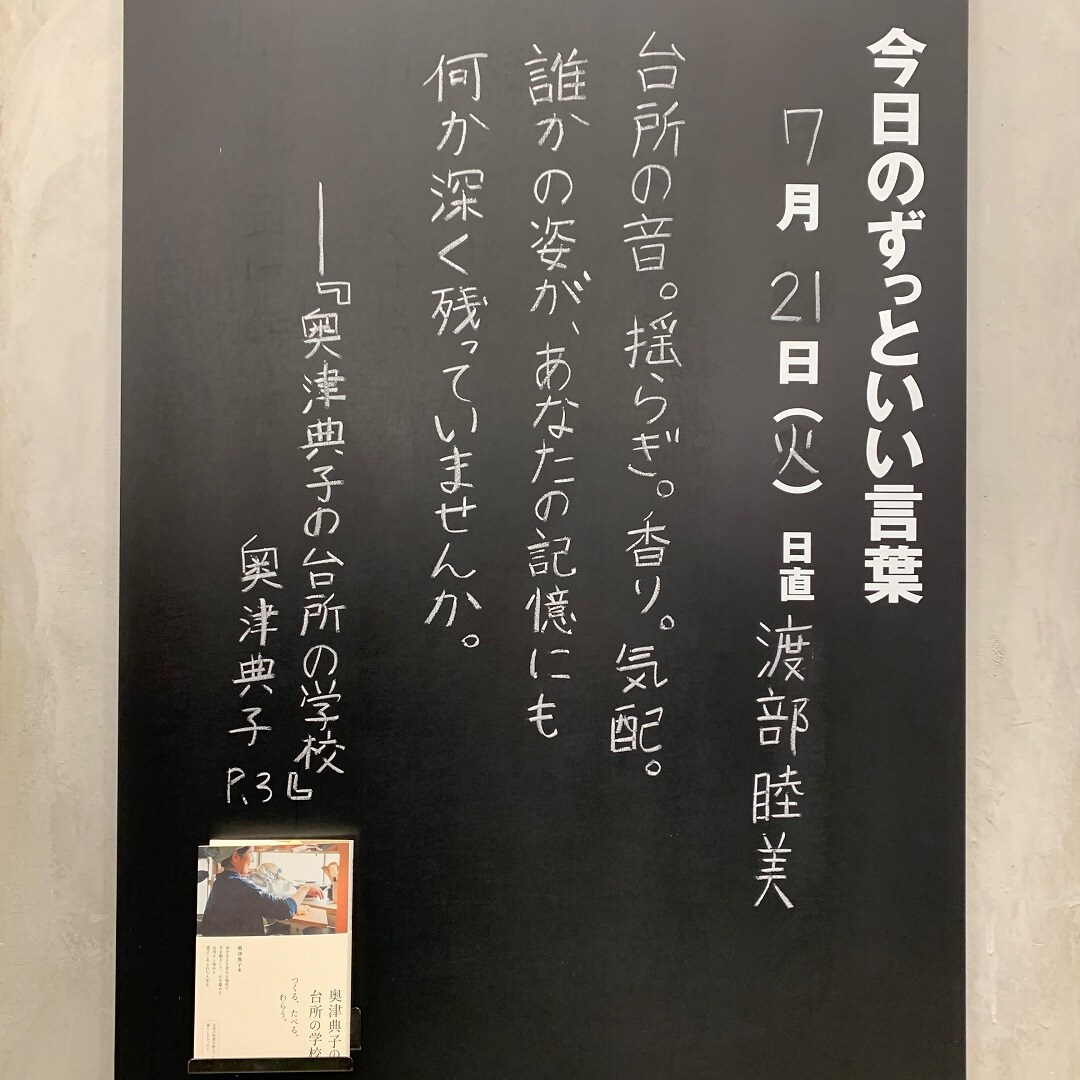 今日のずっといい言葉
7月21日(火) 日直 渡部睦美
台所の音。揺らぎ。香り。気配。
誰かの姿が、あなたの記憶にも
何か深く残っていませんか。
――『奥津典子の台所の学校』
奥津典子 P.3
奥津典子の
台所の学校
つくる、たべる、
わらう。
奥津典子 著